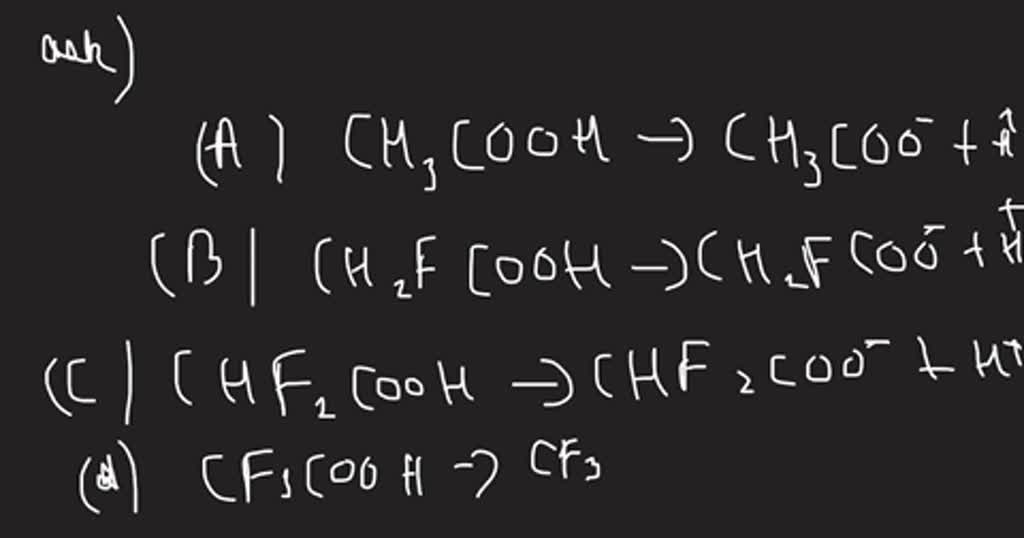 ask)
(A) CH₃COOH → CH₃COO⁻ + H⁺
(B) CH₂FCOOH → CH₂FCOO⁻ + H⁺
(C) CHF₂COOH → CHF₂COO⁻ + H⁺
(d) CF₃COOH → CF₃